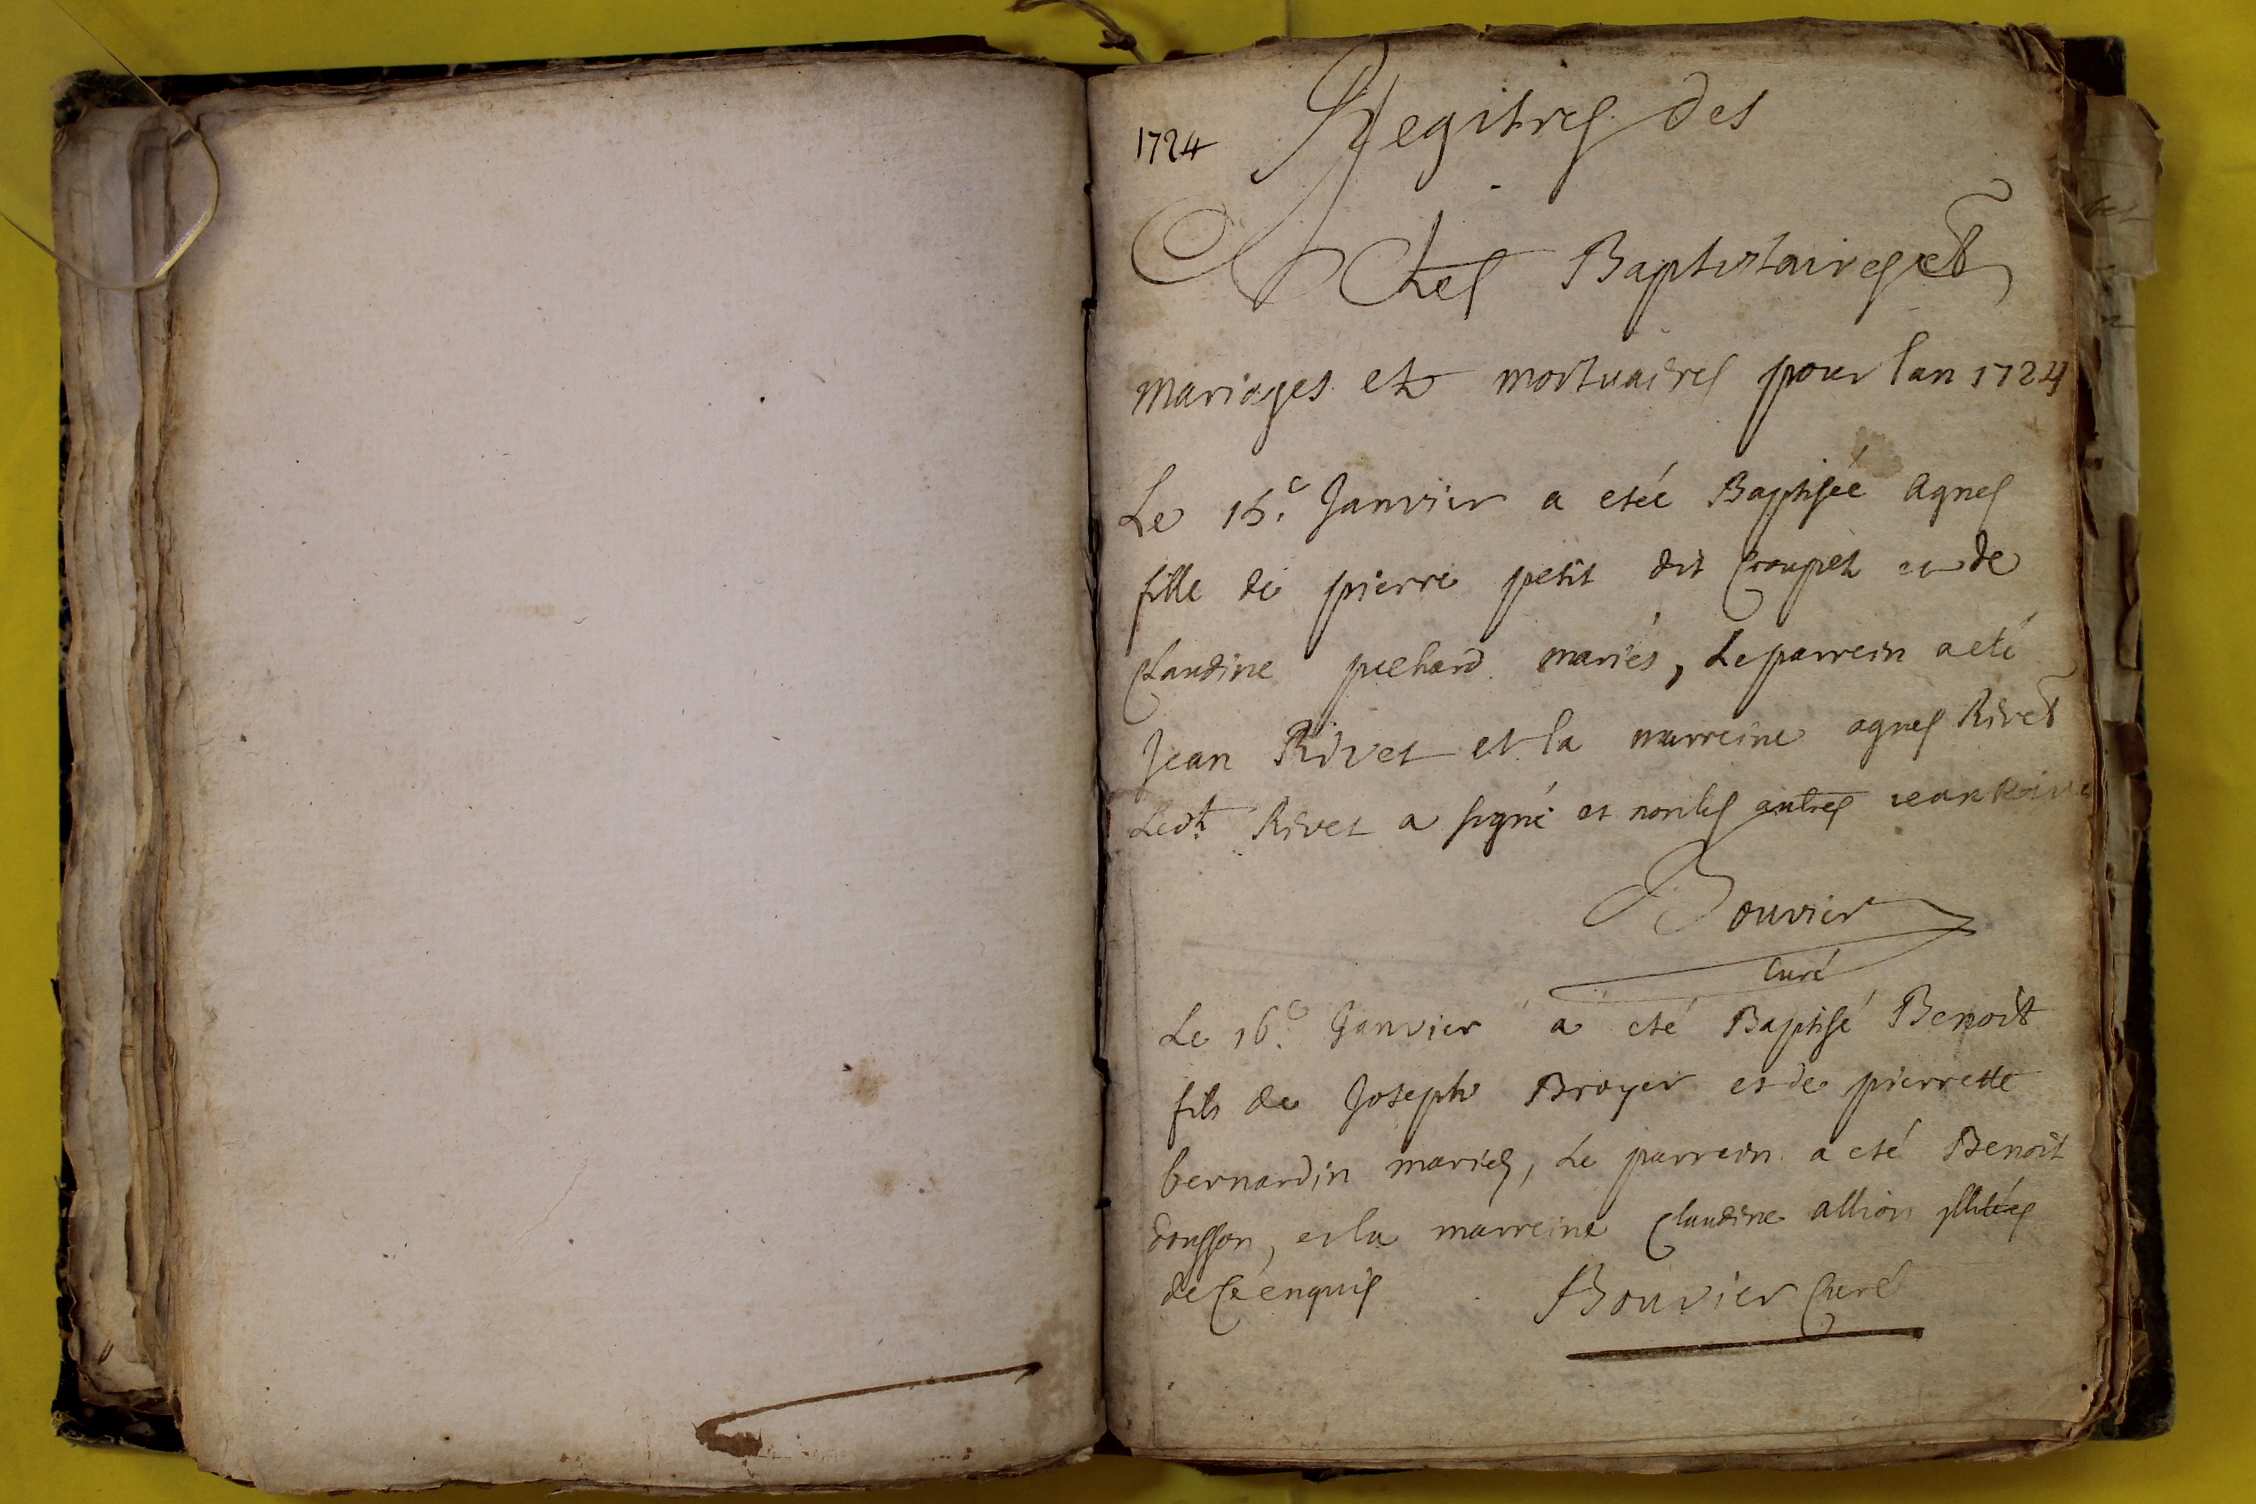 1724 Regitres des
Actes Baptistaires et
mariages et mortuaires pour lan 1724
Le 15e. Janvier a eteé Baptiseé Agnes
fille de pierre petit dit Croupet et de
Claudine pichard mariés, Le parrein a eté
Jean Rivet et la marreine agnes Rivet
Ledt. Rivet a signé et non les autres jean Rive
Bouvier
Curé
Le 16e. Janvier a eté Baptisé Benoit
fils de Joseph Broyer et de pierrette
bernardin mariés, Le parrein a eté Benoit
dousson, et la marreine Claudine allion illitéres
de Ce enquis Bouvier Curé